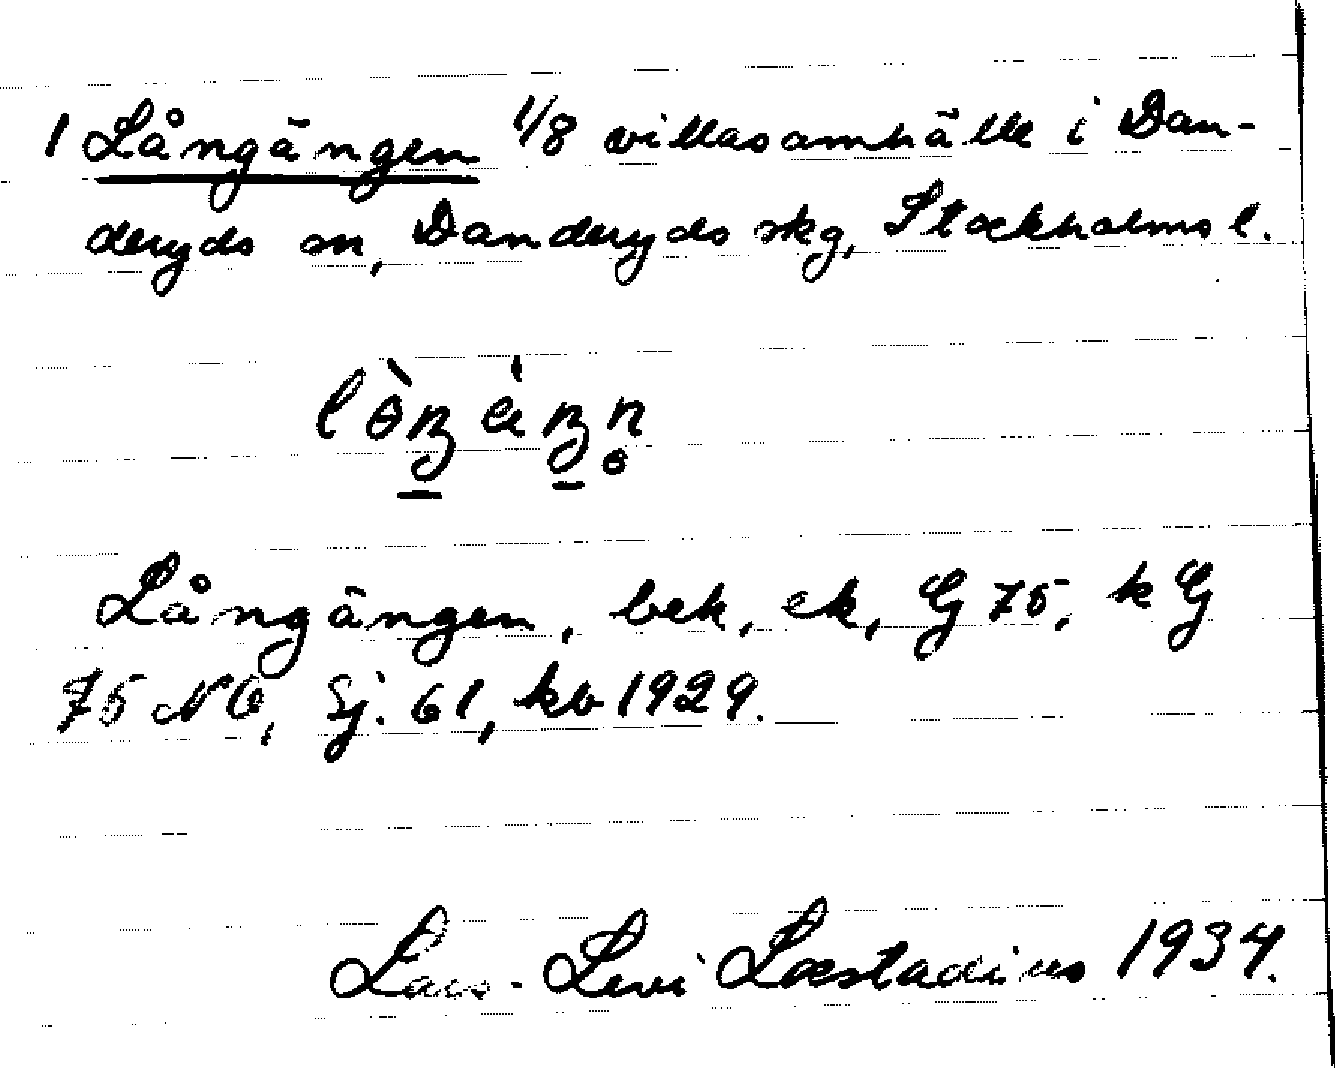 1 Långängen 1/8 villasamhälle i Dan-
deryds sn, Danderyds skg, Stockholms l.
Långängen, bek, ek, G 75, k G
75 NO, Sj. 61, kb 1929.
Lars-Levi Læstadius 1934.